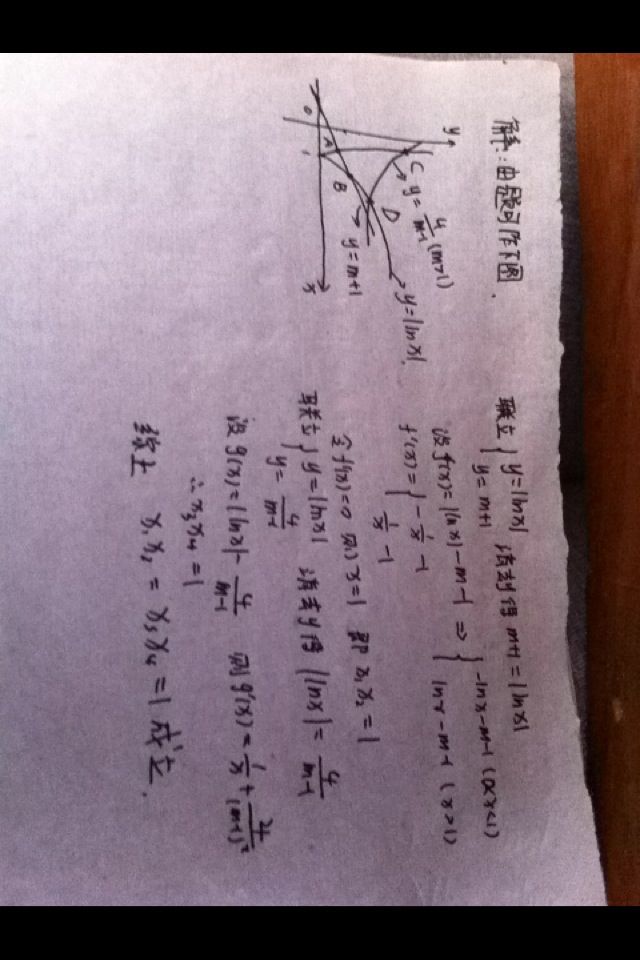 解:由题可作下图.
y
C
y=4/(m-1) (m>1)
D
y=|lnx|
O
A
B
y=m+1
1
x
联立{y=|lnx| y=m+1 消去y得 m+1=|lnx|
设f(x)=|lnx|-m-1 ⇒ {-lnx-m-1 (0<x<1) lnx-m-1 (x>1)
f'(x)={-1/x -1 1/x -1
令f'(x)=0 则x=1 即 x₁x₂=1
联立{y=|lnx| y=4/(m-1) 消去y得 |lnx|=4/(m-1)
设g(x)=|lnx|-4/(m-1) 则g'(x)=1/x+4/(m-1)²
∴x₃x₄=1
综上 x₁x₂=x₃x₄=1成立.